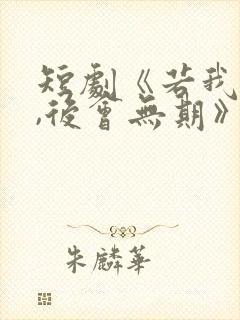 短劇《若我
,後會無期》
朱麟華